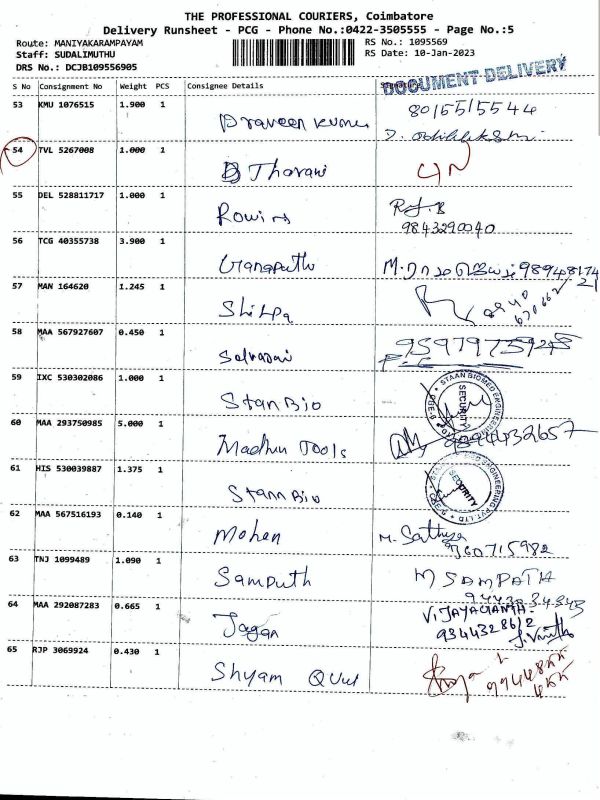 THE PROFESSIONAL COURIERS, Coimbatore
Delivery Runsheet - PCG - Phone No.:0422-3505555 - Page No.:5
Route: MANIYAKARAMPAYAM
Staff: SUDALIMUTHU
DRS No.: DCJB109556905
RS No.: 1095569
RS Date: 10-Jan-2023
DOCUMENT DELIVERY
S No Consignment No Weight PCS Consignee Details Signature
53 KMU 1076515 1.900 1 Praveen Kumar 8015515544
54 TVL 5267008 1.000 1 Tharani
55 DEL 528811717 1.000 1 9843290040
56 TCG 40355738 3.900 1
57 MAN 164620 1.245 1 Shilpa
58 MAA 567927607 0.450 1
59 IXC 530302086 1.000 1 Stan Bio
STAAN BIOMED ENGINEERING SECURITY
60 MAA 293750985 5.000 1 Madhu Tools 9894432657
61 HIS 530039887 1.375 1 Stann Bio
ENGINEERING PVT LTD SECURITY
62 MAA 567516193 0.140 1 Mohan M. Sathya
63 TNJ 1099489 1.090 1 Samputh M SAMPATH
64 MAA 292087283 0.665 1 Jagan
65 RJP 3069924 0.430 1 Shyam